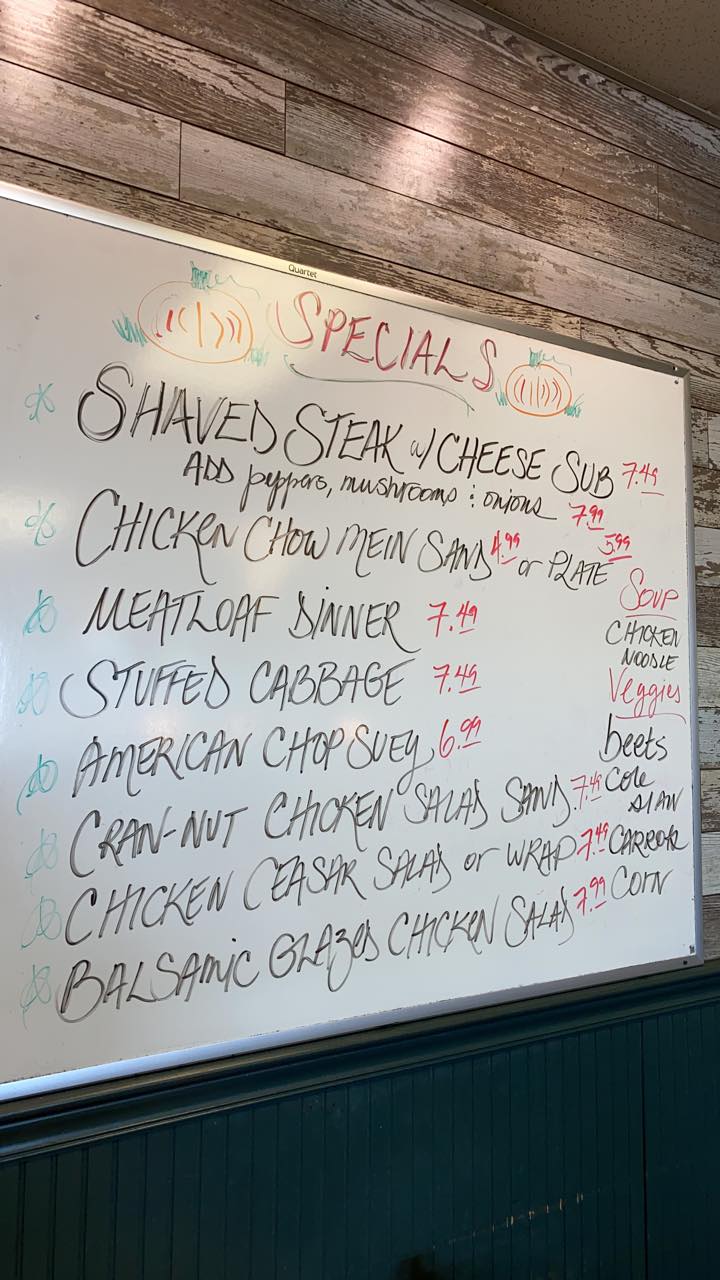 Quartet
SPECIALS
SHAVED STEAK w/ CHEESE SUB 7.49
ADD peppers, mushrooms & onions 7.99
CHICKEN CHOW MEIN SAND 4.99 or PLATE 5.99
MEATLOAF DINNER 7.49
STUFFED CABBAGE 7.49
AMERICAN CHOP SUEY 6.99
CRAN-NUT CHICKEN SALAD SAND 7.49
CHICKEN CEASAR SALAD or WRAP 7.49
BALSAMIC GLAZED CHICKEN SALAD 7.99
SOUP
CHICKEN
NOODLE
Veggies
beets
Cole
SLAW
CARROTS
CORN